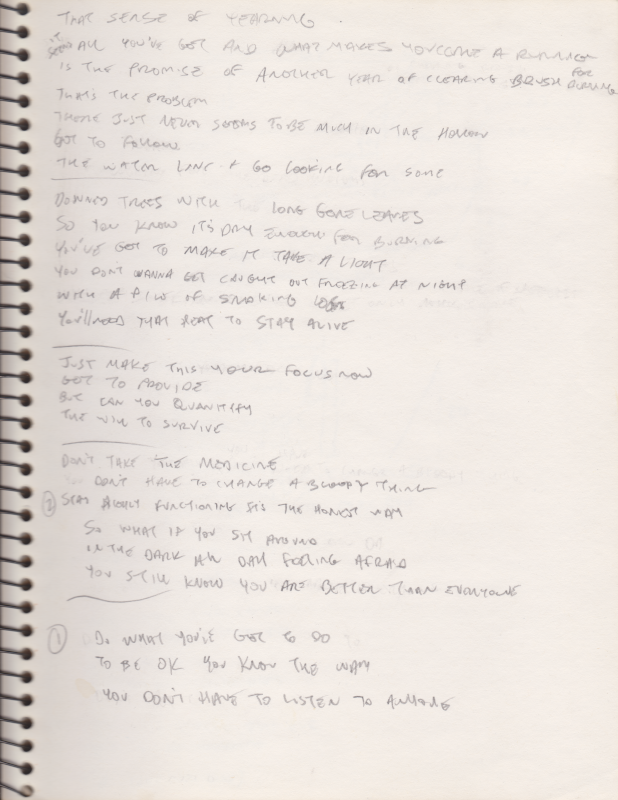 THAT SENSE OF YEARNING.
IT SEEMS ALL YOU'VE GOT AND WHAT MAKES YOU COME A RUNNING
IS THE PROMISE OF ANOTHER YEAR OF CLEARING BRUSH FOR BURNING
THAT'S THE PROBLEM
THERE JUST NEVER SEEMS TO BE MUCH IN THE
GOT TO FOLLOW
THE WATER LINE + GO LOOKING FOR SOME
DOWNED TREES WITH LONG GONE LEAVES
SO YOU KNOW IT'S DRY ENOUGH FOR BURNING
YOU'VE GOT TO MAKE IT TAKE A LIGHT
YOU DON'T WANNA GET CAUGHT OUT FREEZING AT NIGHT
WITH A PILE OF SMOKING LOGS
YOU'LL NEED THAT HEAT TO STAY ALIVE
JUST MAKE THIS YOUR FOCUS NOW
GOT TO PROVIDE
BUT CAN YOU QUANTIFY
THE WILL TO SURVIVE
DON'T TAKE THE MEDICINE
DON'T HAVE TO CHANGE A BLOODY THING
② STAY HIGHLY FUNCTIONING IT'S THE HONEST WAY
SO WHAT IF YOU SIT AROUND
IN THE DARK ALL DAY FEELING AFRAID
YOU STILL KNOW YOU ARE BETTER THAN EVERYONE
① DO WHAT YOU'VE GOT TO DO
TO BE OK YOU KNOW THE WAY
YOU DON'T HAVE TO LISTEN TO ANYONE